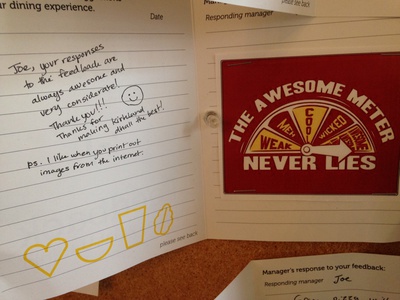 ur dining experience.
Date
Joe, your responses
to the feedback are
always awesome and
very considerate!
Thank you!!!
Thanks for
making Kirkland
dhall the best!
ps. I like when you print out
images from the internet.
please see back
please see back
Responding manager
THE AWESOME METER
WEAK
MEH
COOL
WICKED
NEVER LIES
Manager's response to your feedback:
Responding manager Joe